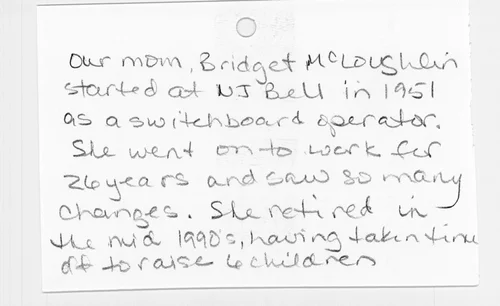 Our mom, Bridget McLoughlin
started at NJ Bell in 1951
as a switchboard operator.
She went on to work for
26 years and saw so many
changes. She retired in
the mid 1990's, having taken time
off to raise 6 children